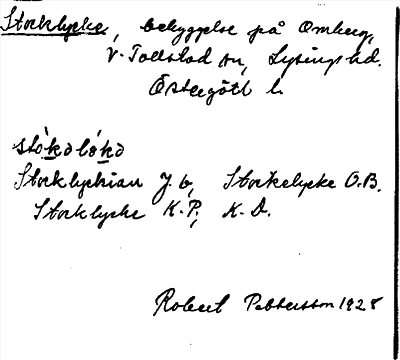 Stocklycke, bebyggelse på Omberg,
V. Tollstad sn, Lysings hd.
Östergötl l.
stòkəlỳkə
Stocklyckian J.b., Stockelycke O.B.
Stocklycke K.P., K.D.
Robert Pettersson 1928